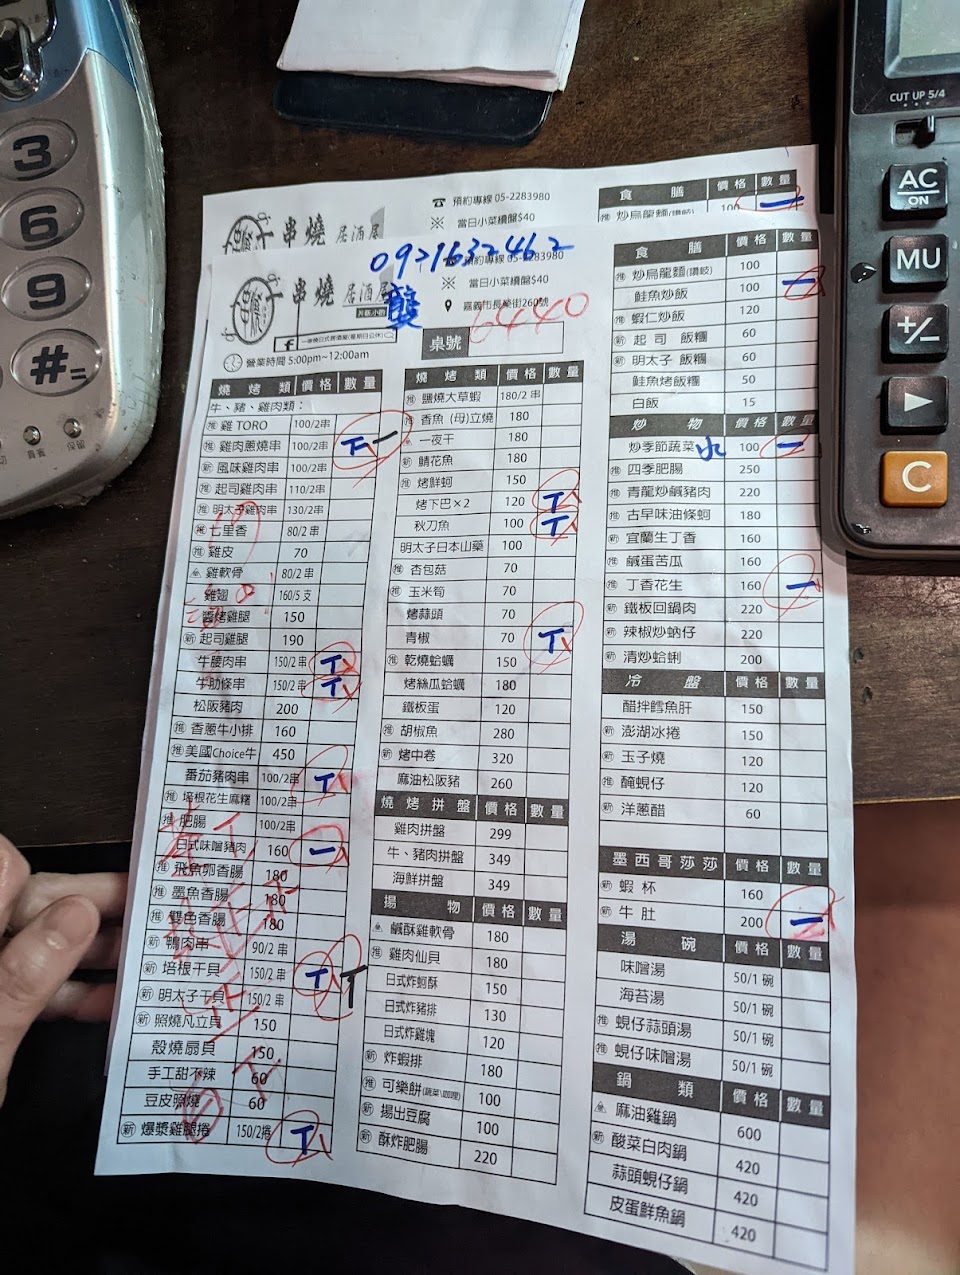 3
6
9
#
保留
CUT UP 5/4
AC
ON
MU
+/-
C
串燒 居酒屋
☎ 預約專線 05-2283980
※ 當日小菜槓盤$40
食膳 價格 數量
推 炒烏龍麵(讚岐) 100
0921632462
雙
串燒 居酒屋
預約專線 05-2283980
※ 當日小菜槓盤$40
嘉義市長榮街260號
6440
營業時間 5:00pm~12:00am
桌號
燒烤類 價格 數量
牛、豬、雞肉類：
推 雞TORO 100/2串
推 雞肉蔥燒串 100/2串 下 一
新 風味雞肉串 100/2串
推 起司雞肉串 110/2串
推 明太子雞肉串 130/2串
七里香 80/2串
推 雞皮 70
雞軟骨 80/2串
雞翅 160/5支
醬烤雞腿 150
新 起司雞腿 190
牛腰肉串 150/2串 T
牛肋條串 150/2串 T
松阪豬肉 200
推 香蔥牛小排 160
推 美國Choice牛 450
番茄豬肉串 100/2串 T
推 培根花生麻糬 100/2串
推 肥腸 100/2串
日式味噌豬肉 160 一
推 飛魚卵香腸 180
推 墨魚香腸 180
推 雙色香腸 180
新 鴨肉串 90/2串
新 培根干貝 150/2串 T T
新 明太子干貝 150/2串
新 照燒凡立貝 150
殼燒扇貝 150
手工甜不辣 60
豆皮照燒 60
新 爆漿雞腿捲 150/2捲 T
燒烤類 價格 數量
推 鹽燒大草蝦 180/2串
推 香魚(母)立燒 180
一夜干 180
新 鯖花魚 180
推 烤鮮蚵 150
烤下巴×2 120 T
秋刀魚 100 T
明太子日本山藥 100
推 杏包菇 70
推 玉米筍 70
烤蒜頭 70
青椒 70 T
推 乾燒蛤蠣 150
烤絲瓜蛤蠣 180
鐵板蛋 120
推 胡椒魚 280
新 烤中卷 320
麻油松阪豬 260
燒烤拼盤 價格 數量
雞肉拼盤 299
牛、豬肉拼盤 349
海鮮拼盤 349
揚物 價格 數量
鹹酥雞軟骨 180
推 雞肉仙貝 180
日式炸蚵酥 150
日式炸豬排 130
日式炸雞塊 120
新 炸蝦排 180
推 可樂餅(蔬菜\咖哩) 100
新 揚出豆腐 100
新 酥炸肥腸 220
食膳 價格 數量
推 炒烏龍麵(讚岐) 100
鮭魚炒飯 100 一
推 蝦仁炒飯 120
新 起司 飯糰 60
新 明太子 飯糰 60
鮭魚烤飯糰 50
白飯 15
炒物 價格 數量
炒季節蔬菜 水 100 一
推 四季肥腸 250
推 青龍炒鹹豬肉 220
推 古早味油條蚵 180
新 宜蘭生丁香 160
新 鹹蛋苦瓜 160
推 丁香花生 160 一
新 鐵板回鍋肉 220
新 辣椒炒蚋仔 220
新 清炒蛤蜊 200
冷盤 價格 數量
醋拌鱈魚肝 150
新 澎湖冰捲 150
新 玉子燒 120
推 醃蜆仔 120
新 洋蔥醋 60
墨西哥莎莎 價格 數量
新 蝦杯 160
新 牛肚 200 一
湯碗 價格 數量
味噌湯 50/1碗
海苔湯 50/1碗
推 蜆仔蒜頭湯 50/1碗
推 蜆仔味噌湯 50/1碗
鍋類 價格 數量
麻油雞鍋 600
新 酸菜白肉鍋 420
蒜頭蜆仔鍋 420
皮蛋鮮魚鍋 420